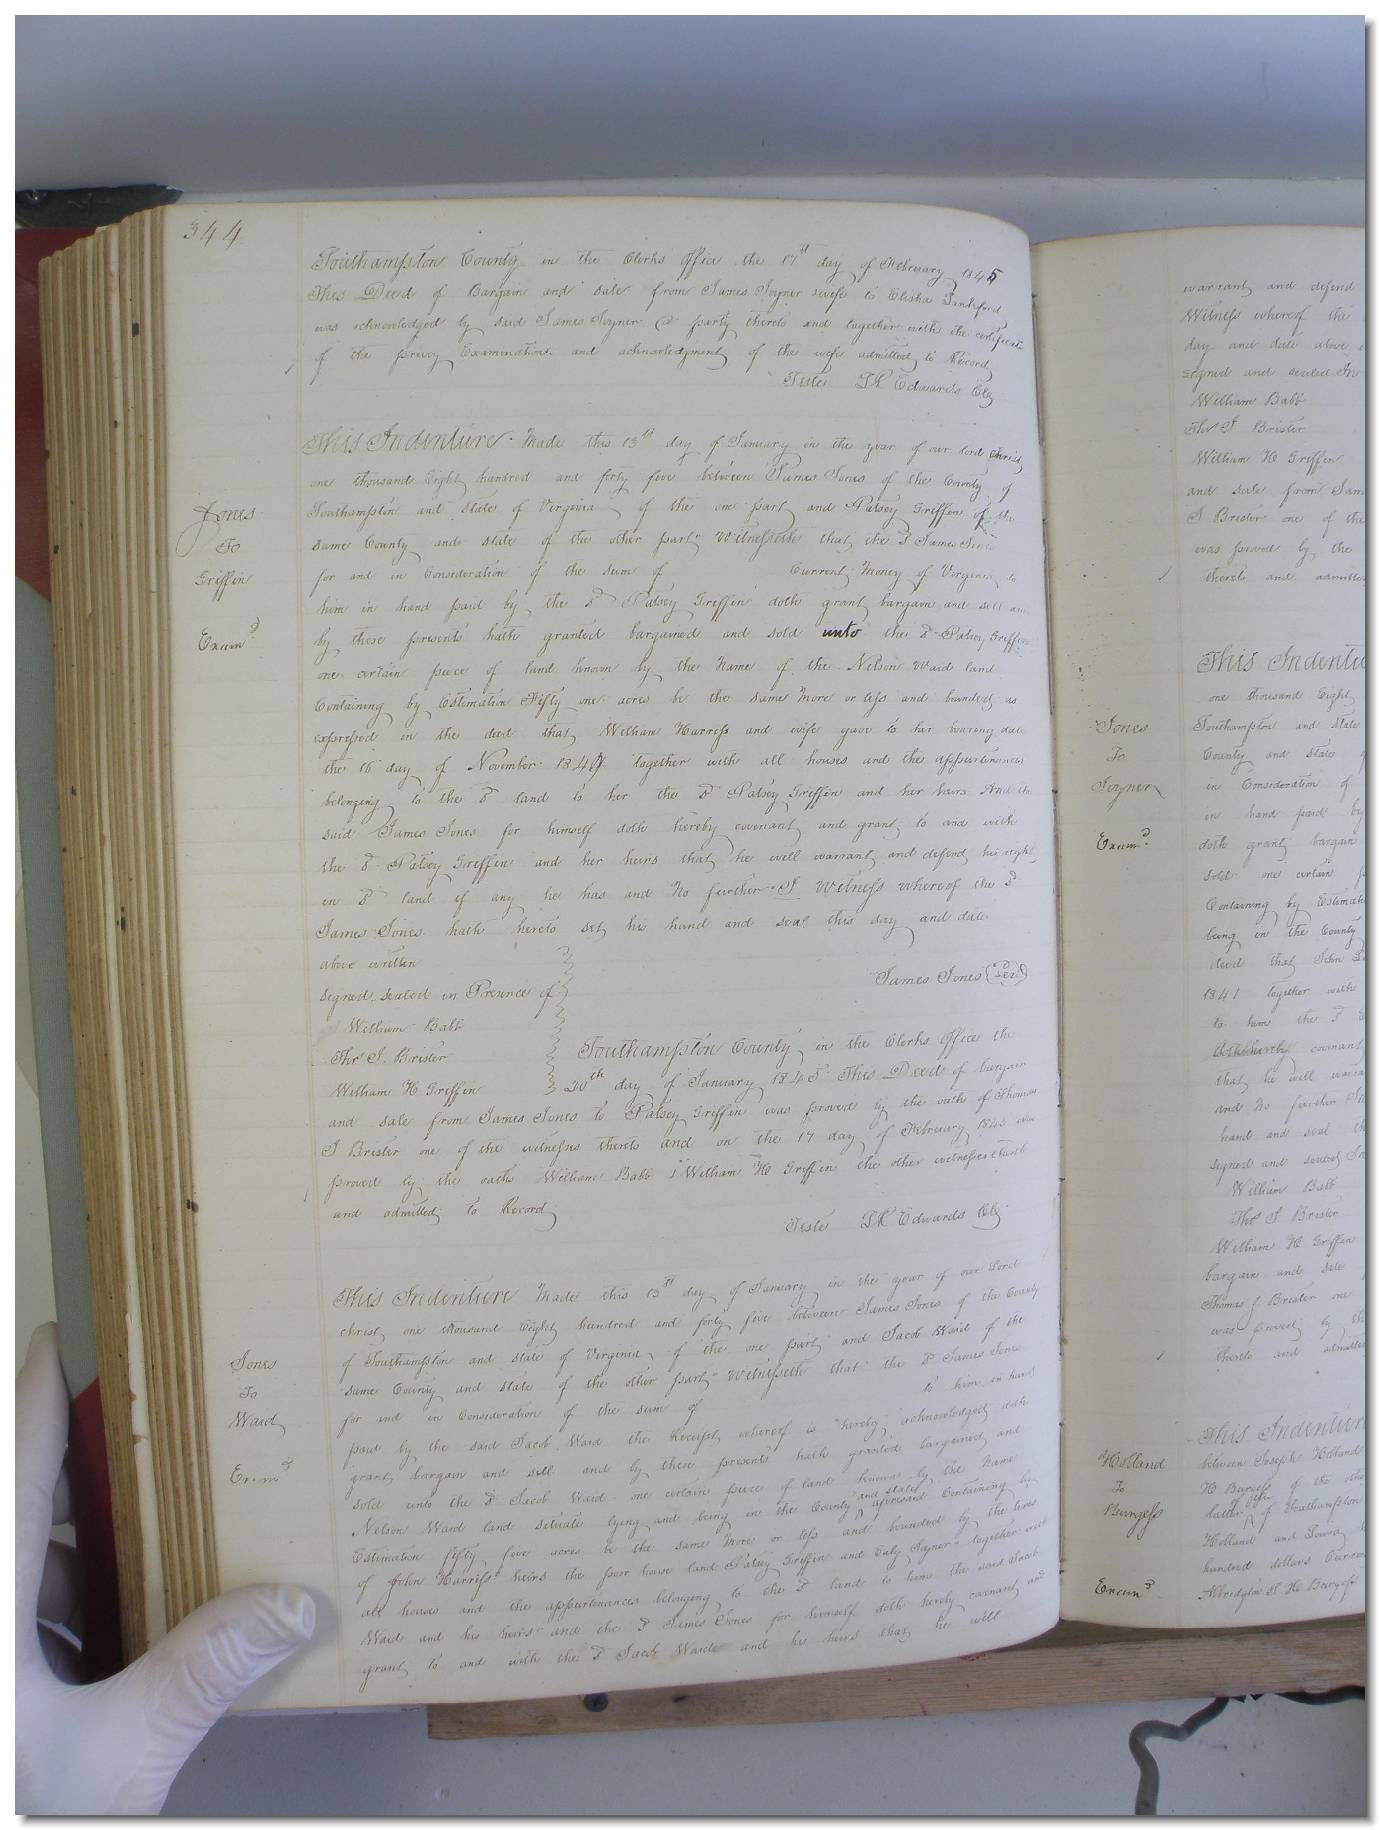 344
Southampton County in the Clerks Office the 17th day of February 1845
This Deed of Bargain and sale from James Joyner & wife to Elisha Lankford
was acknowledged by said James Joyner a party thereto and together with the certificate
of the privy Examination and acknowledgment of the wife admitted to Record
Teste LR Edwards Clk
Jones
To
Griffin
Examd
This Indenture Made this 13th day of January in the year of our lord Christ
one thousand Eight hundred and forty five between James Jones of the County of
Southampton and state of Virginia of the one part and Patsey Griffin of the
same County and state of the other part Witnesseth that the sd James Jones
for and in Consideration of the sum of Current Money of Virginia to
him in hand paid by the sd Patsey Griffin doth grant bargain and sell and
by these presents hath granted bargained and sold unto the sd Patsey Griffin
one certain piece of land known by the Name of the Nelson Waid land
Containing by Estimation Fifty one acres be the same More or less and bounded as
expressed in the deed that William Harriss and wife gave to her bearing date
the 16 day of November 184 together with all houses and the appurtenances
belonging to the sd land to her the sd Patsey Griffin and her heirs And the
said James Jones for himself doth hereby covenant and grant to and with
the sd Patsey Griffin and her heirs that he will warrant and defend his right
in sd land if any he has and No further I Witness whereof the sd
James Jones hath hereto set his hand and seal this day and date
above written
James Jones (seal)
signed sealed in Presence of
William Babb
Thos J. Brister
William H Griffin
Southampton County in the Clerks Office the
20th day of January 1845 This Deed of bargain
and sale from James Jones to Patsey Griffin was proved by the oath of Thomas
J Brister one of the witnesses thereto and on the 17 day of February 1845 was
proved by the oaths William Babb & William H Griffin the other witnesses thereto
and admitted to Record
Teste LR Edwards Clk
Jones
To
Waid
Examd
This Indenture Made this 13th day of January in the year of our Lord
christ one thousand Eight hundred and forty five between James Jones of the County
of Southampton and state of Virginia of the one part and Jacob Waid of the
same County and state of the other part Witnesseth that the sd James Jones
for and in Consideration of the sum of to him in hand
paid by the said Jacob Waid the Receipt whereof is hereby acknowledged doth
grant bargain and sell and by these presents hath granted bargained and
sold unto the sd Jacob Waid one certain piece of land known by the Name
Nelson Ward land situate lying and being in the County and state aforesaid Containing by
Estimation fifty five acres be the same More or less and bounded by the lines
of John Harriss heirs the poor house land Patsey Griffin and Joyner together with
all houses and the appurtenances belonging to the sd land to him the said Jacob
Waid and his heirs and the sd James Jones for himself doth hereby covenant and
grant to and with the sd Jacob Waide and his heirs that he will
warrant and defend
Witness whereof the
day and date above
signed and sealed In
William Babb
Thos J Brister
William H Griffin
and sale from Jam
J Brister one of the
was proved by the
thereto and admitted
Jones
To
Joyner
Examd
This Indentu
one thousand Eight
Southampton and state
County and state
in Consideration of
in hand paid by
doth grant bargain
sold one certain
Containing by Estimati
being in the County
deed that John
1841 together with
to him the sd
covenant
that he will warra
and No further
hand and seal th
signed and sealed In
William Babb
Thos J. Brister
William H Griffin
bargain and sale
Thomas J Brister one
was proved by th
thereto and admitte
Holland
To
Burgess
Examd
This Indenture
between Joseph Holland
H Burgess of the othe
latter of the of Southampton
Holland and
hundred dollars
H Burgess